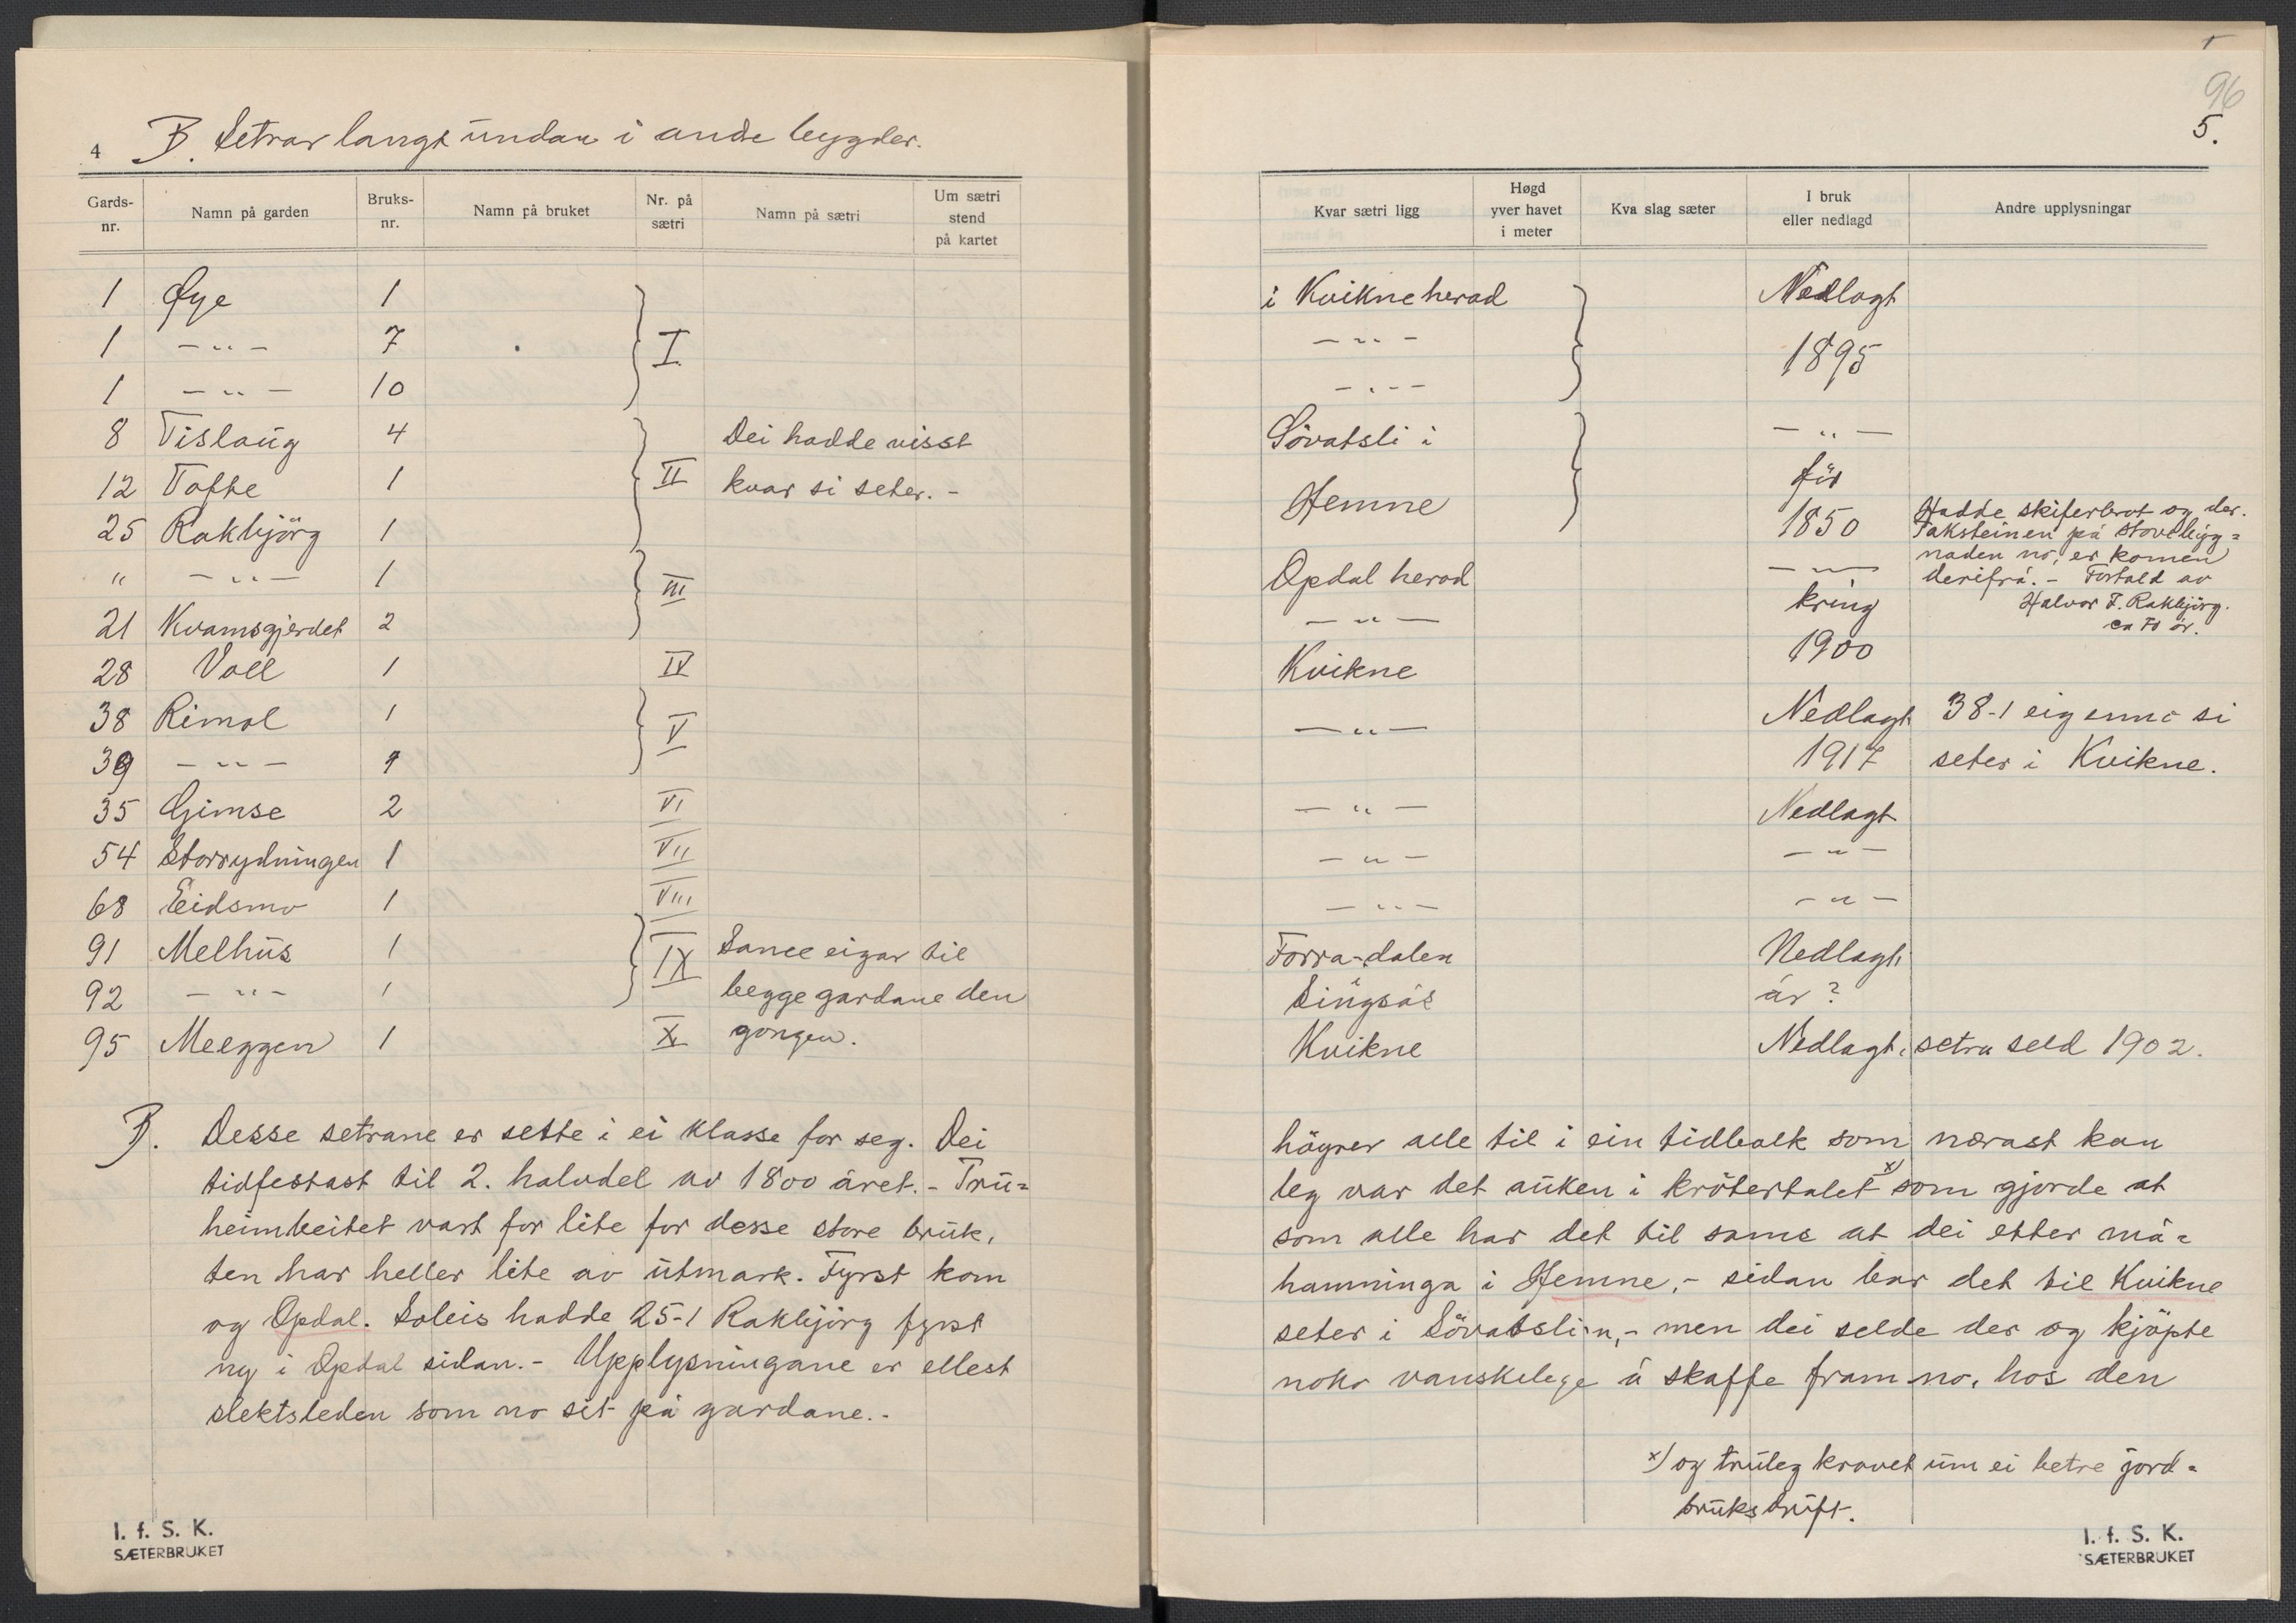 4 B. Setrar langt undan i andre bygder.
Gards-nr. Namn på garden Bruks-nr. Namn på bruket Nr. på sætri Namn på sætri Um sætri stend på kartet
1 Øye 1
1 —"— 7 I
1 —"— 10
8 Tislaug 4 Dei hadde visst
12 Tofte 1 II kvar si seter. -
25 Rakbjörg 1
" —"— 1 III
21 Kvamsgjerdet 2
28 Voll 1 IV
38 Rimol 1 V
39 —"— 1
35 Gimse 2 VI
54 Storrydningen 1 VII
68 Eidsmo 1 VIII
91 Melhus 1 IX Same eigar til
92 —"— 1 begge gardane den
95 Meeggen 1 X gongen.
B. Desse setrane er sette i ei klasse for seg. Dei
tidfestast til 2. halvdel av 1800 året. - Tru=
heimbeitet vart for lite for desse store bruk,
ten har heller lite av utmark. Fyrst kom
og Opdal. Soleis hadde 25-1 Rakbjörg fyrst
ny i Opdal sidan. - Upplysningane er ellest
slektsleden som no sit på gardane. -
I. f. S. K.
SÆTERBRUKET
96
5.
Kvar sætri ligg Høgd yver havet i meter Kva slag sæter I bruk eller nedlagd Andre upplysningar
i Kvikne herad Nedlagt
—"— 1895
—"—
Sövatsli i —"—
för
Hemne 1850 Hadde skiferbrot og der.
Taksteinen på stovebygg=
naden no, er komen
Opdal herad —"— derifrå. - Fortald av
kring Halvor F. Rakbjörg.
—"— ca 70 år.
Kvikne 1900
—"— Nedlagt 38-1 eig ennå si
1917 seter i Kvikne.
—"— Nedlagt
—"— —"—
—"— —"—
Forra-dalen Nedlagt
Singsås år?
Kvikne Nedlagt, setra seld 1902.
höyrer alle til i ein tidbolk som nærast kan
leg var det auken i krötertalet x) som gjorde at
som alle har det til sams at dei etter må=
hamninga i Hemne, - sidan bar det til Kvikne
seter i Sövatslin, - men dei selde der og kjöpte
noko vanskelege å skaffe fram no, hos den
x) og truleg kravet um ei betre jord=
bruksdrift.
I. f. S. K.
SÆTERBRUKET